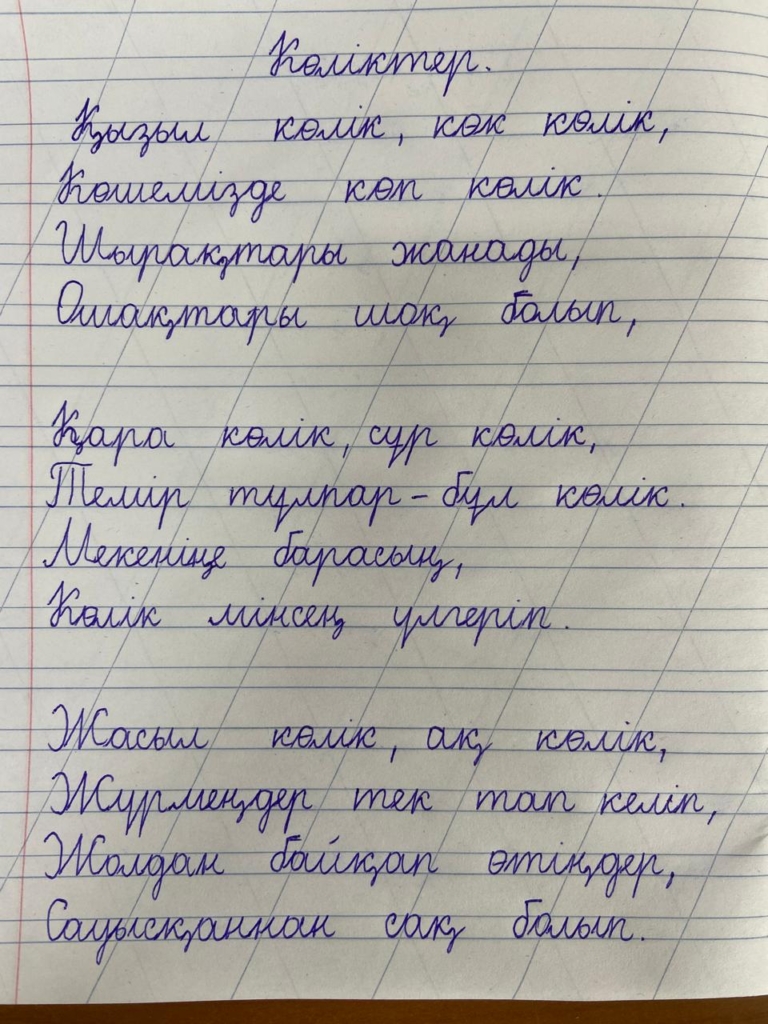 Көліктер.
Қызыл көлік, көк көлік,
Көшемізде көп көлік.
Шырақтары жанады,
Ошақтары шоқ болып,
Қара көлік, сұр көлік,
Темір тұлпар - бұл көлік.
Мекеніңе барасың,
Көлік мінсең үлгеріп.
Жасыл көлік, ақ көлік,
Жүрмеңдер тек тап келіп,
Жолдан байқап өтіңдер,
Сауысқаннан сақ болып.